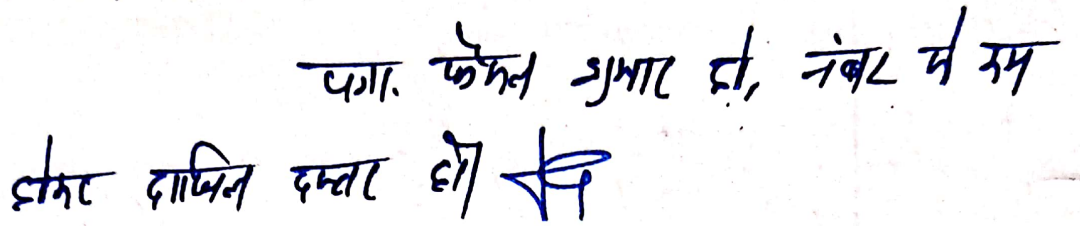 पत्रा. फैसल शुमार हो, नंबर से कम
होकर दाखिल दफ्तर हो।